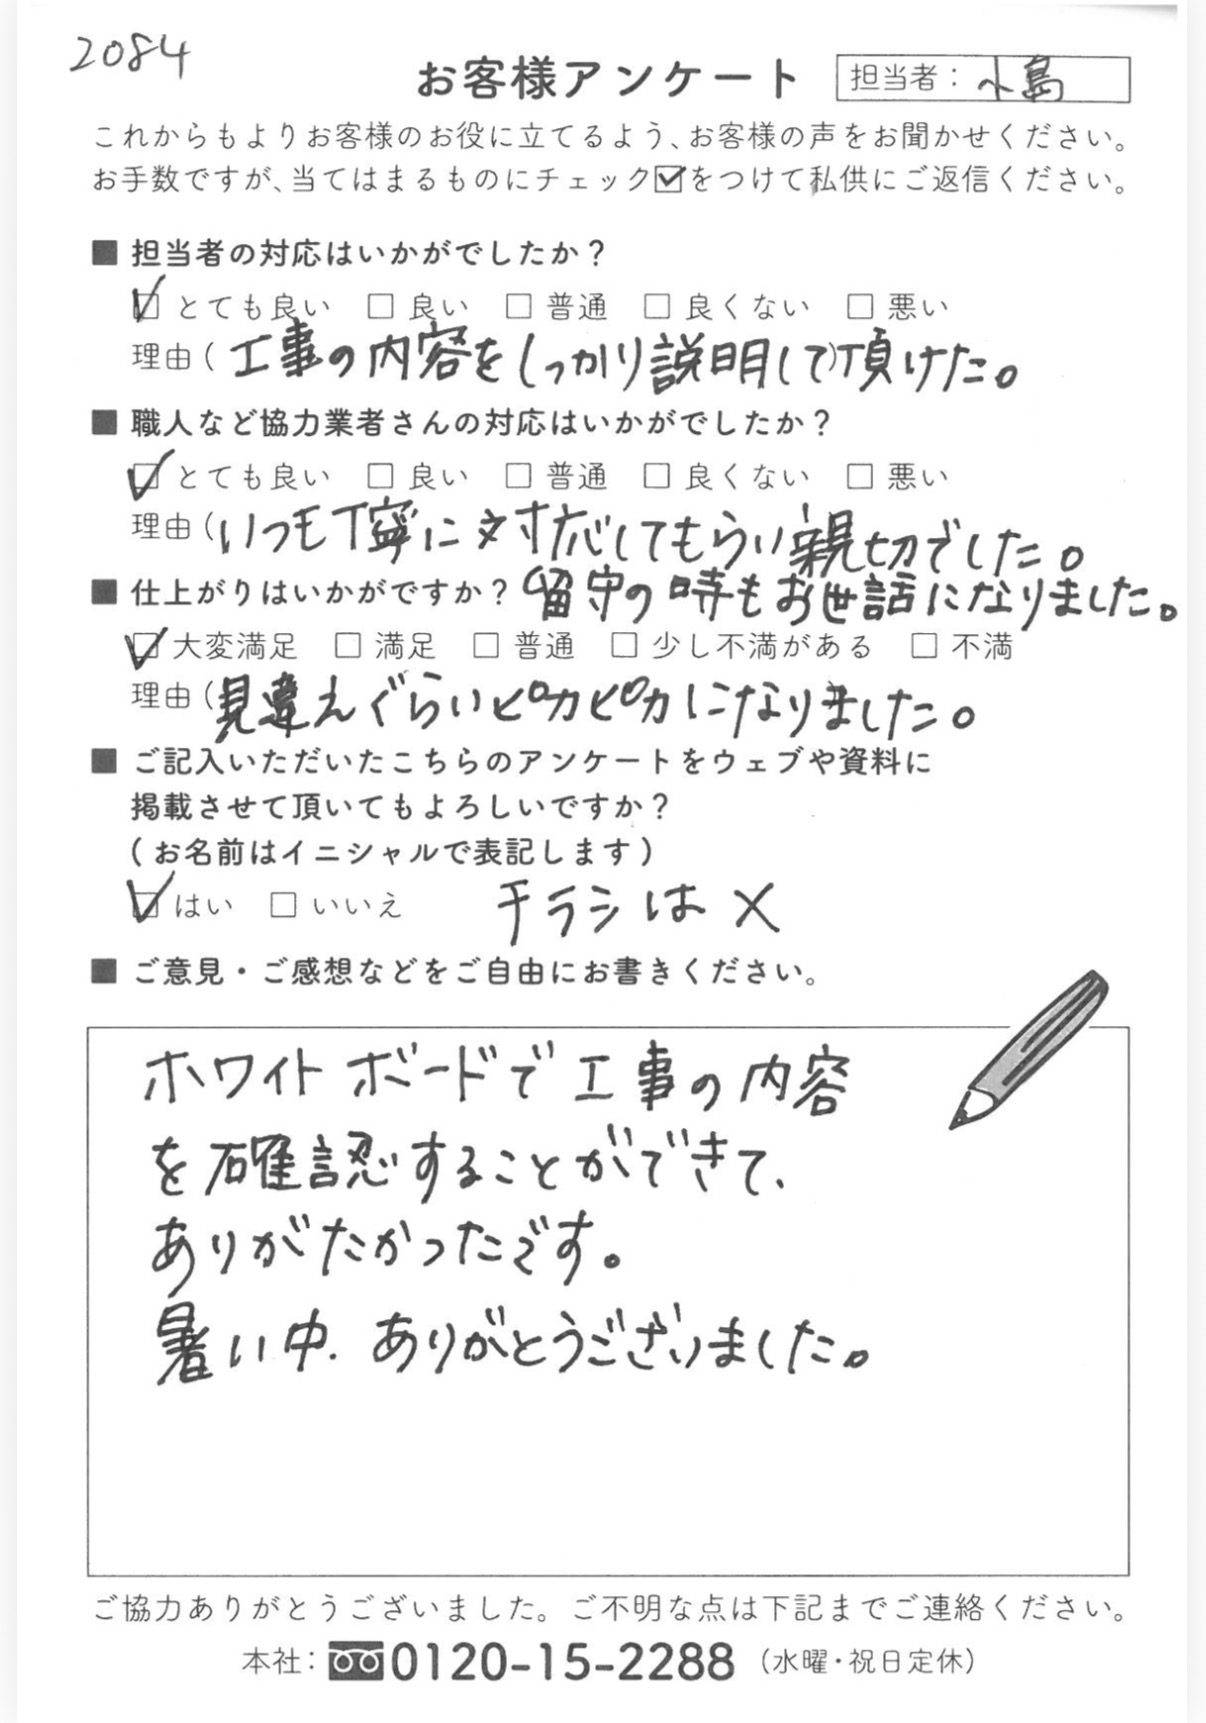 2084
お客様アンケート 担当者：小島
これからもよりお客様のお役に立てるよう、お客様の声をお聞かせください。
お手数ですが、当てはまるものにチェック☑をつけて私供にご返信ください。
■ 担当者の対応はいかがでしたか？
☑ とても良い □ 良い □ 普通 □ 良くない □ 悪い
理由（工事の内容をしっかり説明して頂けた。
■ 職人など協力業者さんの対応はいかがでしたか？
☑ とても良い □ 良い □ 普通 □ 良くない □ 悪い
理由（いつも丁寧に対応してもらい親切でした。
留守の時もお世話になりました。
■ 仕上がりはいかがですか？
☑ 大変満足 □ 満足 □ 普通 □ 少し不満がある □ 不満
理由（見違えぐらいピカピカになりました。
■ ご記入いただいたこちらのアンケートをウェブや資料に
掲載させて頂いてもよろしいですか？
（お名前はイニシャルで表記します）
☑ はい □ いいえ チラシは×
■ ご意見・ご感想などをご自由にお書きください。
ホワイトボードで工事の内容
を確認することができて、
ありがたかったです。
暑い中、ありがとうございました。
ご協力ありがとうございました。ご不明な点は下記までご連絡ください。
本社：0120-15-2288（水曜・祝日定休）